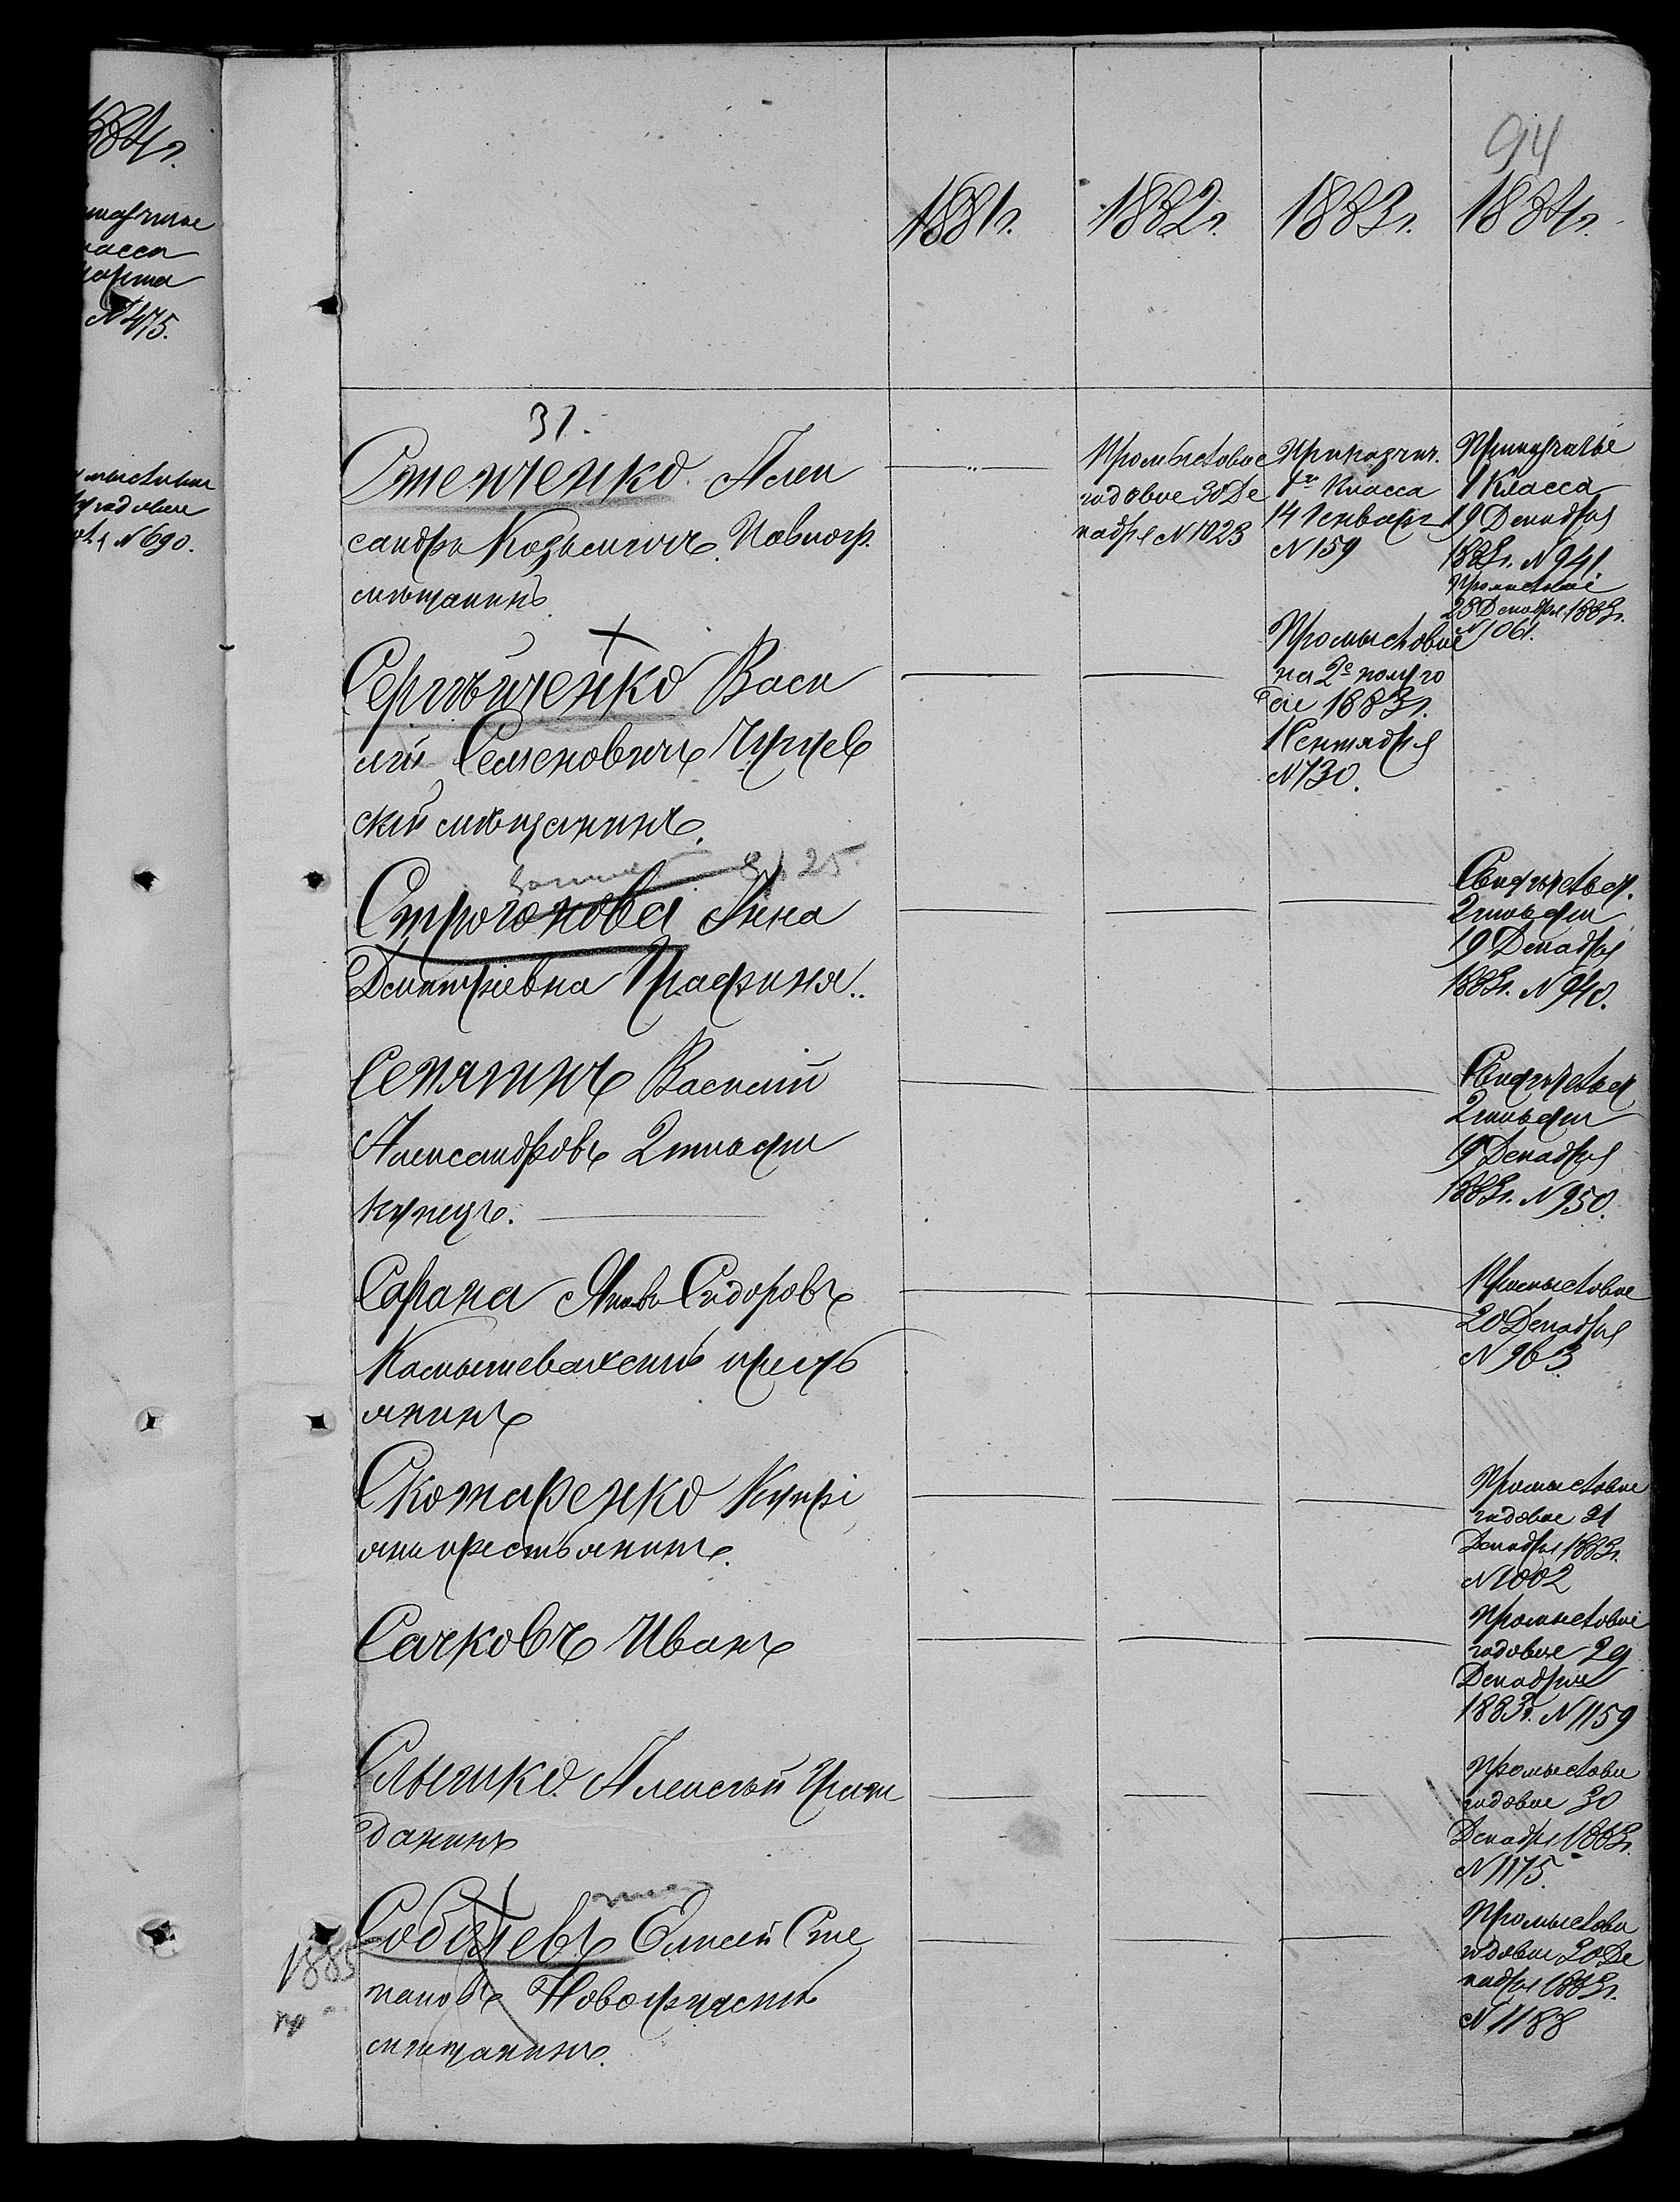 94
1881г. 1882г. 1883г. 1884г.
31.
Стенченко Алек
сандръ Козьмичъ Павлогр.
мѣщанинъ
Промысловое
годовое 30 Де
кабря N 1023
Приказчич.
1го Класса
14 Генваря
N 159
Приказчичье
1 Класса
19 Декабря
1883г. N 941.
Промысловое
28 Декабря 1883г.
N 1061.
Сергѣйченко Васи
лій Семеновичъ
скій мѣщанинъ.
Промысловое
на 2е полуго
діе 1883г.
1 Сентября
N 730.
25
Строгонова Анна
Дмитріевна Графиня..
Свидѣтельст.
2 гильдіи
19 Декабря
1883г. N 940.
Сенягинъ Василій
Александровъ 2 гильдіи
купецъ.
Свидѣтельст
2 гильдіи
19 Декабря
1883г. N 950.
Сарана Яковъ Сидоровъ
Камышевахскій крестъ
янинъ
Промысловое
20 Декабря
N 963
Скотаренко Купрі
янъ крестьянинъ.
Промысловое
годовое 21
Декабря 1883г.
N 1002
Сачковъ Иванъ
Промысловое
годовое 29
Декабря
1883г. N 1159
Слышко Алексѣй Граж
данинъ
Промыслов
годовое 30
Декабря 1883г.
N 1175.
1885
Соболевъ Елисей Сте
пановъ
мѣщанинъ.
Промыслов
годовое 30 Де
кабря 1883г.
N 1188
1884г.
N 475.
N 690.